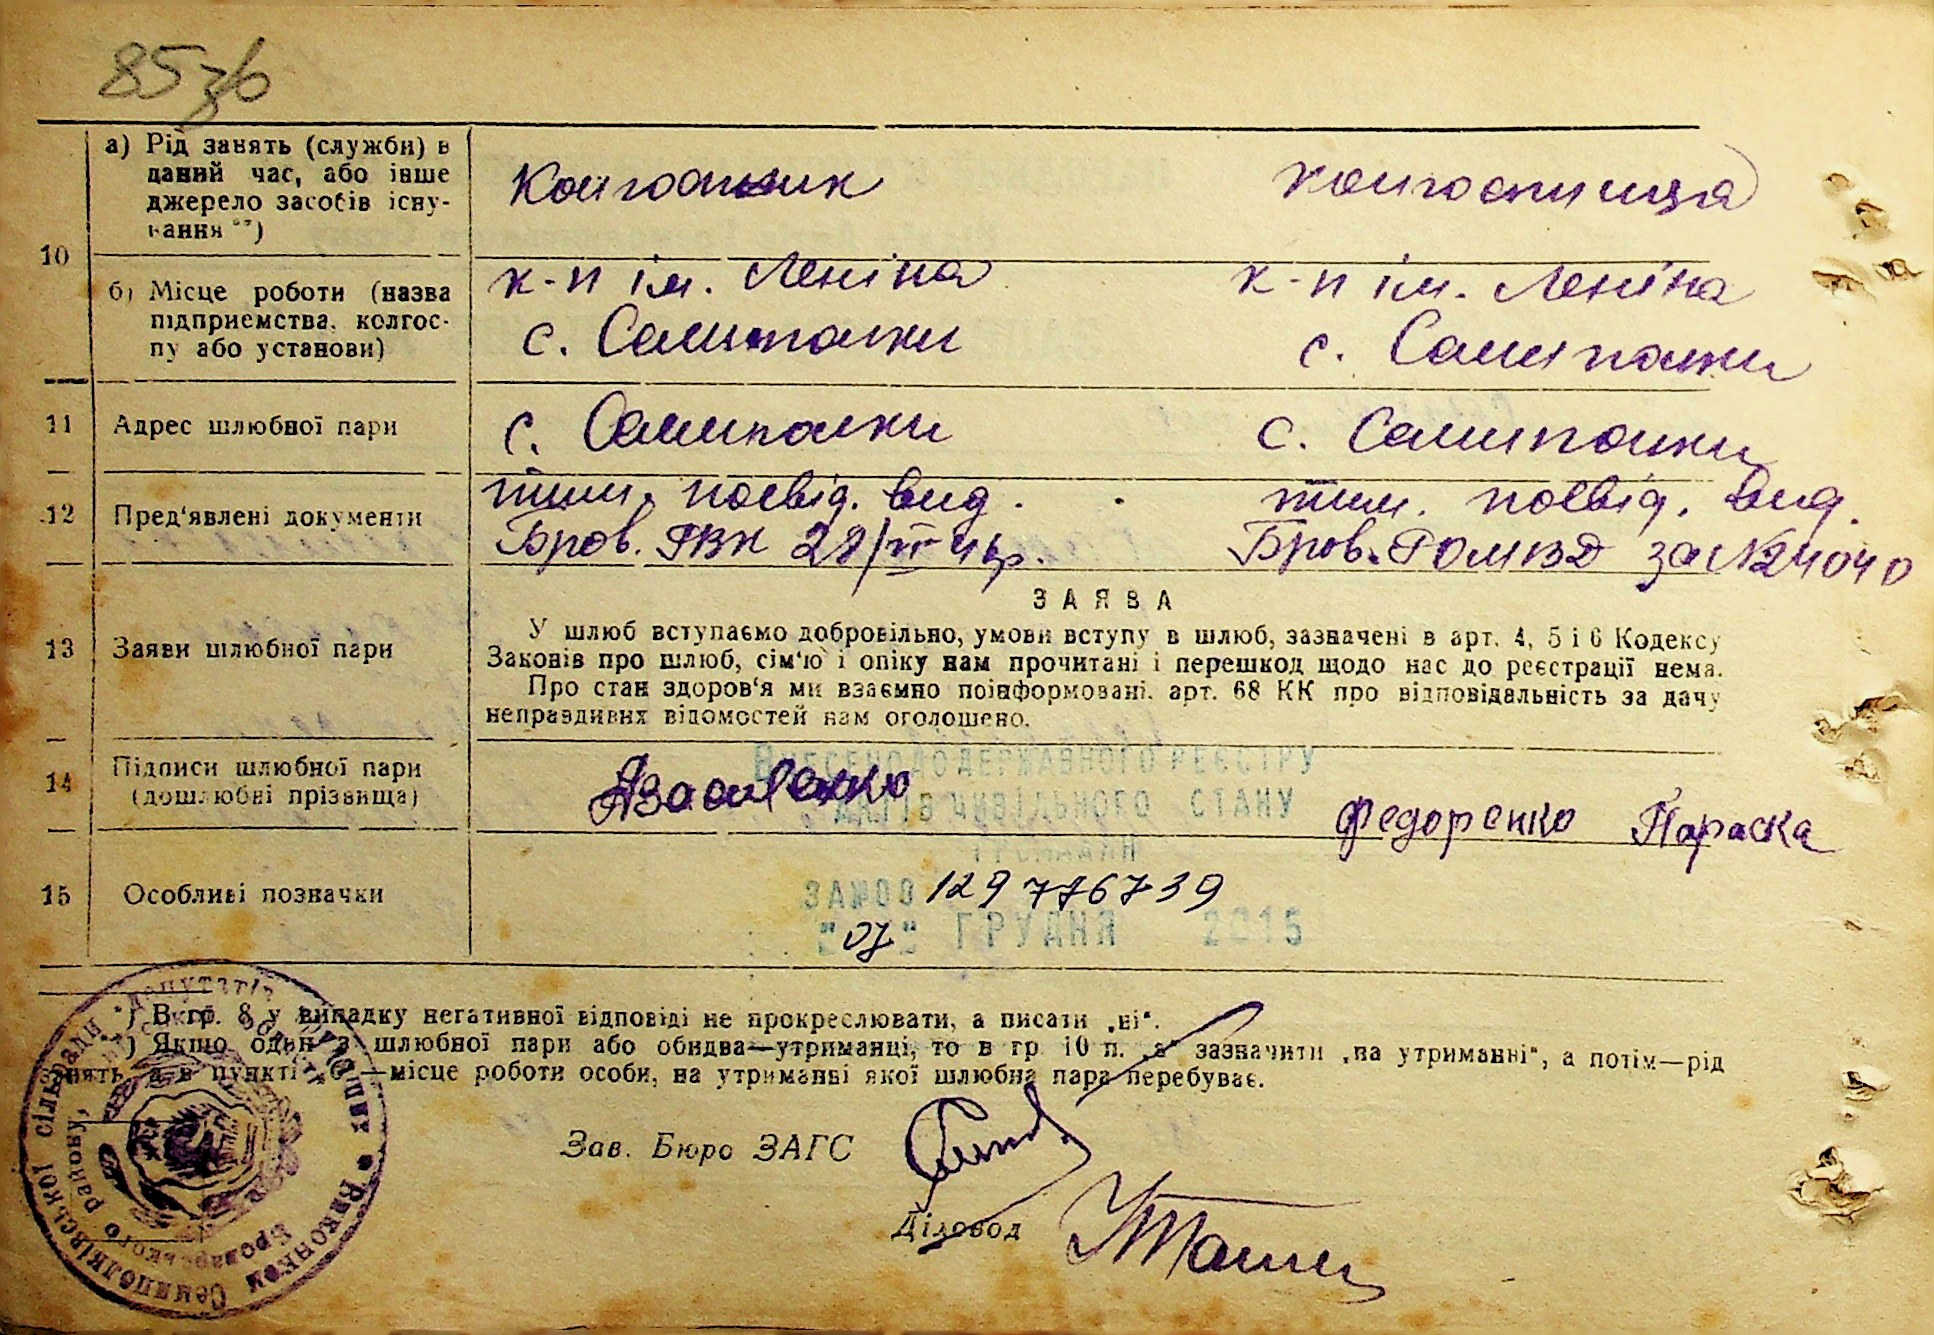 85 зв
10
а) Рід занять (служби) в
даний час, або інше
джерело засобів існу-
вання **)
Колгоспник
колгоспниця
б) Місце роботи (назва
підприємства, колгос-
пу або установи)
к-п ім. Леніна
с. Семиполки
к-п ім. Леніна
с. Семиполки
11
Адрес шлюбної пари
с. Семиполки
с. Семиполки
12
Пред'явлені документи
тим. посвід. вид.
Бров. РВК
тим. посвід. вид.
Бров. РОМВД за №24040
13
Заяви шлюбної пари
ЗАЯВА
У шлюб вступаємо добровільно, умови вступу в шлюб, зазначені в арт. 4, 5 і 6 Кодексу
Законів про шлюб, сім'ю і опіку нам прочитані і перешкод щодо нас до реєстрації нема.
Про стан здоров'я ми взаємно поінформовані. арт. 68 КК про відповідальність за дачу
неправдивих відомостей нам оголошено.
14
Підписи шлюбної пари
(дошлюбні прізвища)
Федоренко Параска
ВНЕСЕНО ДО ДЕРЖАВНОГО РЕЄСТРУ
АКТІВ ЦИВІЛЬНОГО СТАНУ
ГРОМАДЯН
15
Особливі позначки
ЗА №00 129776739
"07" ГРУДНЯ 2015
*) В гр. 8 у випадку негативної відповіді не прокреслювати, а писати „ні“.
**) Якщо один з шлюбної пари або обидва—утриманці, то в гр 10 п. „а“ зазначити „на утриманні“, а потім—рід
занять, а в пункті „б“—місце роботи особи, на утриманні якої шлюбна пара перебуває.
Зав. Бюро ЗАГС
Діловод
Виконком Семиполківської сільради депутатів трудящих
Броварського району, Київської області